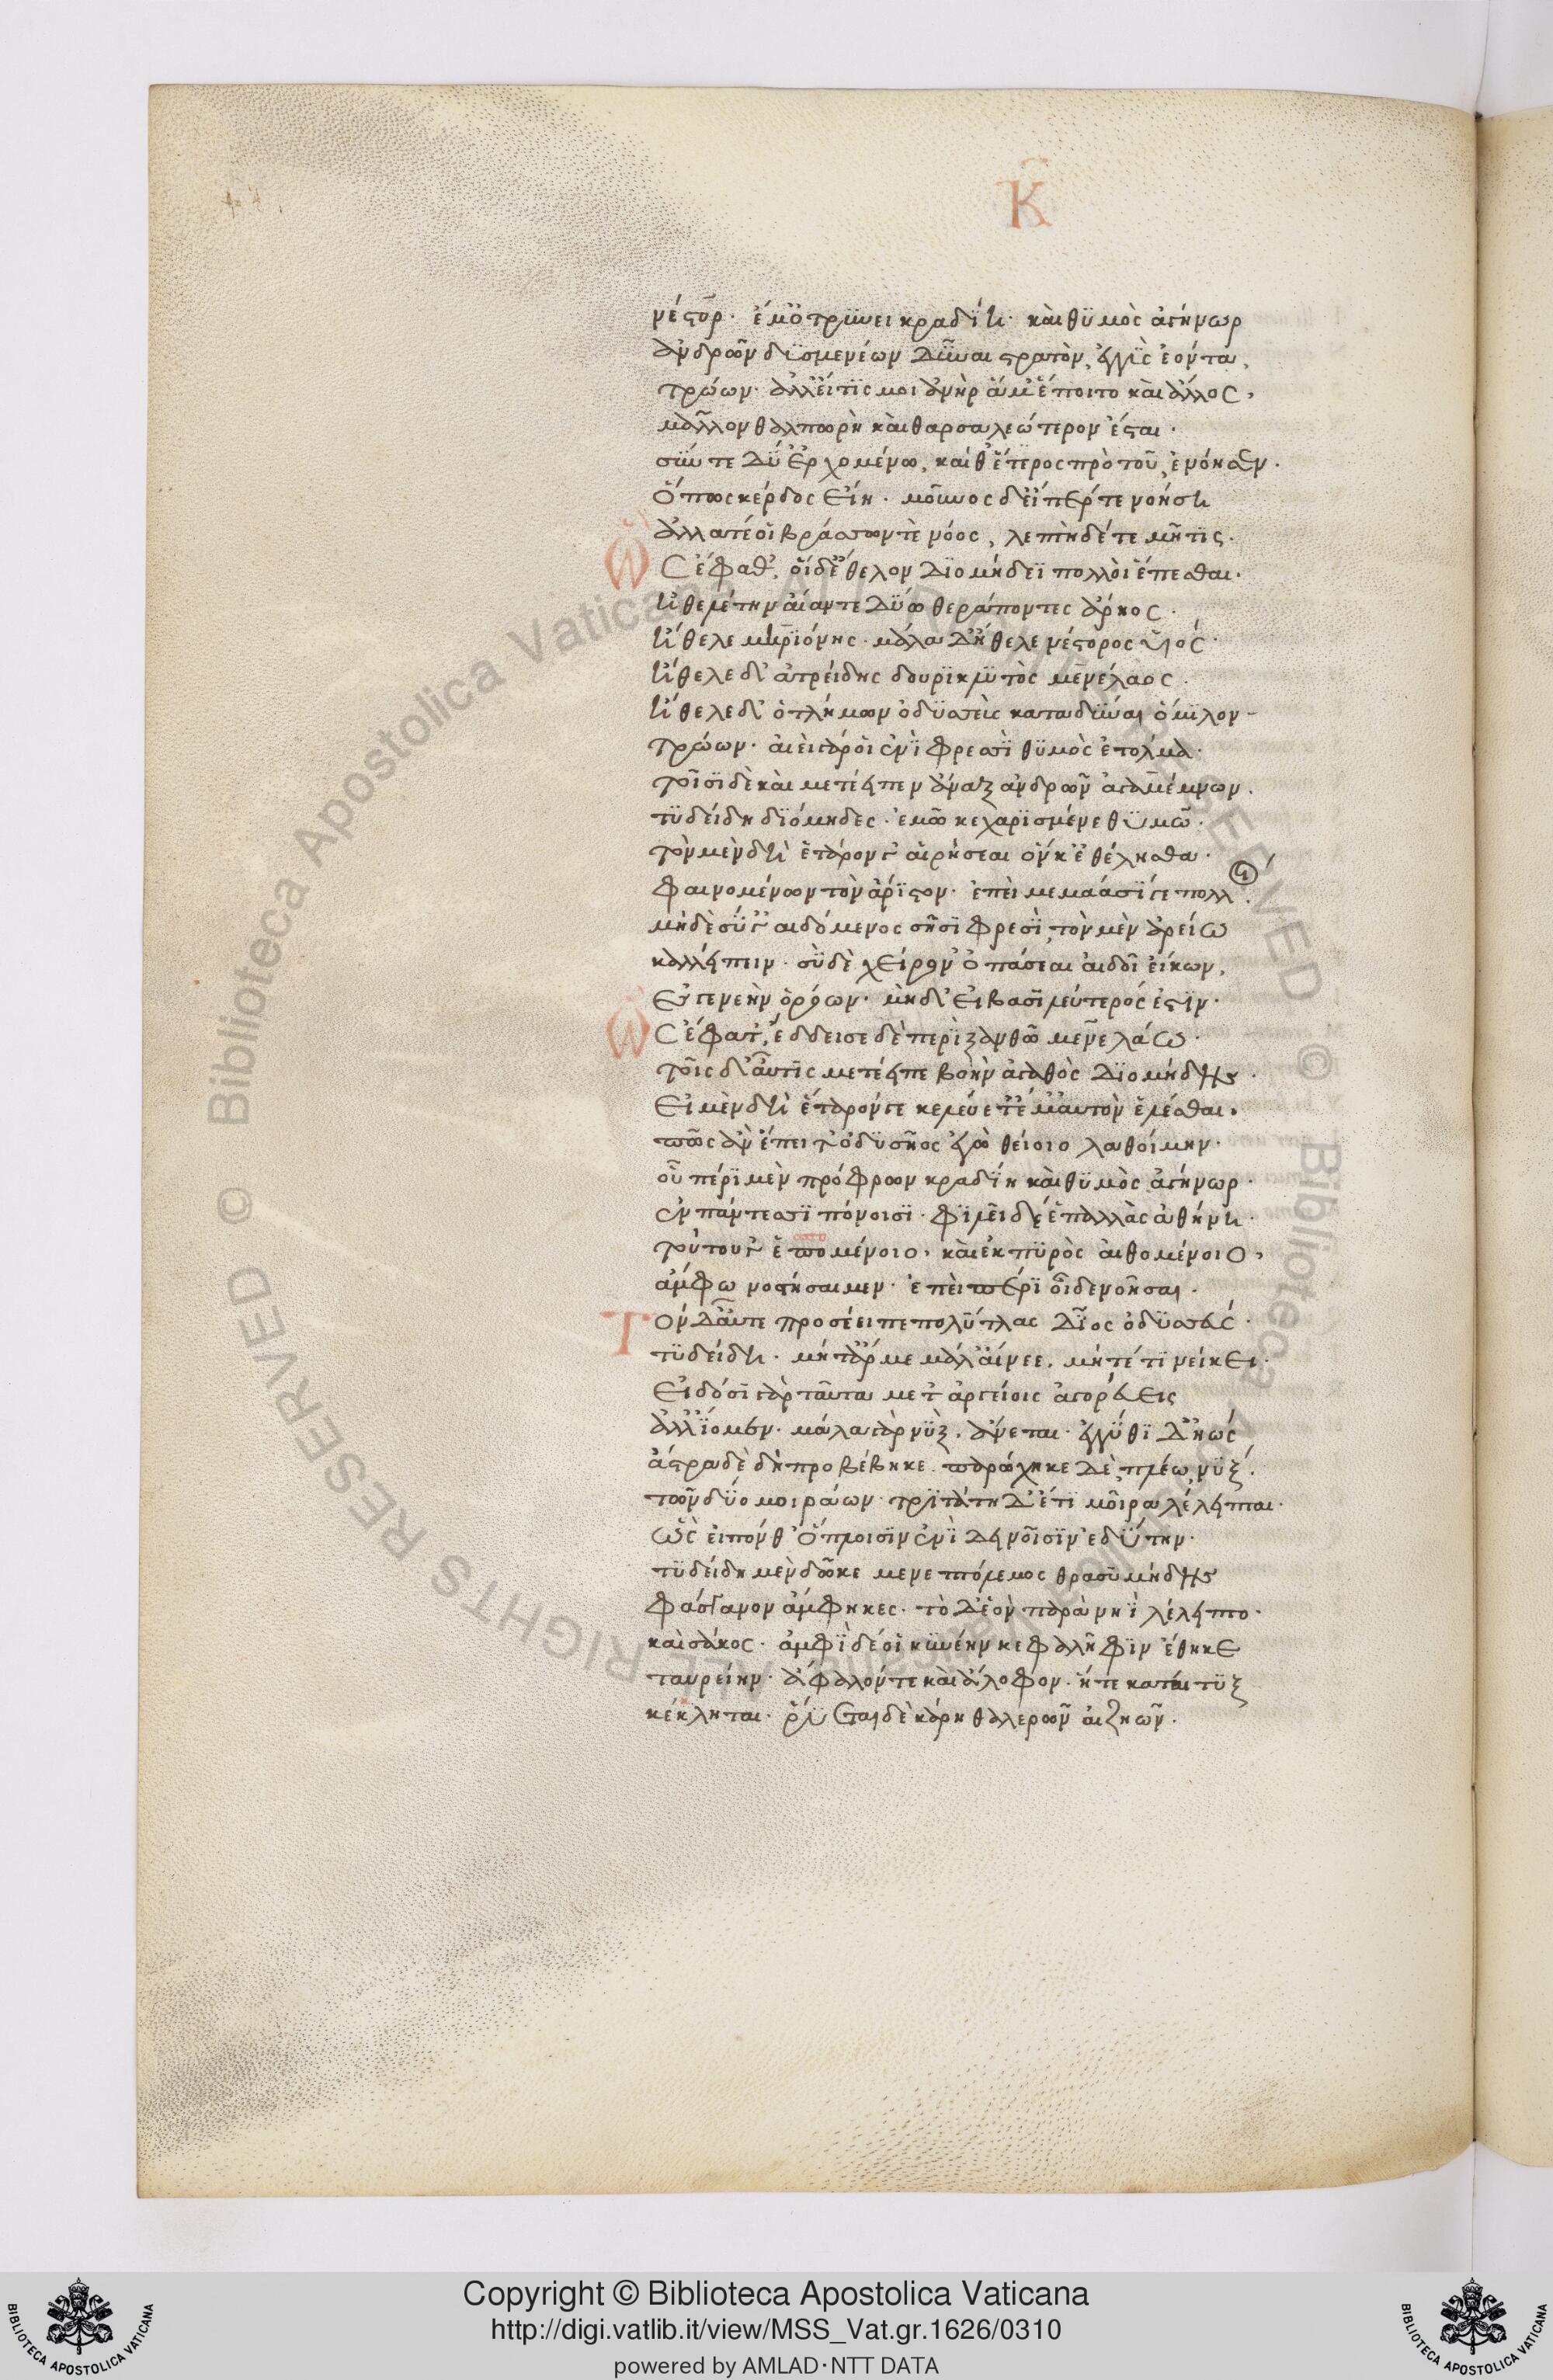 Κ
νέστορ· ἔμ' ὀτρύνει κραδίη· καὶ θυμὸς ἀγήνωρ
ἀνδρῶν δυσμενέων δῦναι στρατὸν, ἐγγὺς ἐόντα,
τρώων· ἀλλ' εἴ τίς μοι ἀνὴρ ἅμ' ἕποιτο καὶ ἄλλος,
μᾶλλον θαλπωρὴ καὶ θαρσαλεώτερον ἔσται·
σύν τε δύ' ἐρχομένω, καί θ' ἕτερος πρὸ τοῦ, ἐνόησεν·
ὅπως κέρδος εἴη· μοῦνος δ' εἴπερ τε νοήση
ἀλλά τέ οἱ βράσσων τὲ νόος, λεπτὴ δέ τε μῆτις·
Ὣς ἔφαθ', οἳ δ' ἔθελον διομήδεϊ πολλοὶ ἕπεσθαι·
ἠθελέτην αἴαντε δύω θεράποντες ἄρηος·
ἤθελε μηριόνης· μάλα δ' ἤθελε νέστορος υἱός·
ἤθελε δ' ἀτρείδης δουρικλυτὸς μενέλαος·
ἤθελε δ' ὁ τλήμων ὀδυσσεὺς καταδῦναι ὅμιλον
τρώων· αἰεὶ γάρ οἱ ἐνὶ φρεσὶ θυμὸς ἐτόλμα·
τοῖσι δὲ καὶ μετέειπεν ἄναξ ἀνδρῶν ἀγαμέμνων·
τυδείδη διόμηδες· ἐμῶ κεχαρισμένε θυμῶ·
τὸν μὲν δὴ ἕταρόν γ' αἱρήσεαι ὅν κ' ἐθέλησθα·
φαινομένων τὸν ἄριστον· ἐπεὶ μεμάασί γε πολλοί·
μηδὲ σύ γ' αἰδόμενος σῇσι φρεσὶ, τὸν μὲν ἀρείω
καλλείπειν· σὺ δὲ χείρον' ὀπάσεαι αἰδοῖ εἴκων,
ἐς γενεὴν ὁρόων· μὴ δ' εἰ βασιλεύτερός ἐστιν·
Ὣς ἔφατ', ἔδδεισε δὲ περὶ ξανθῶ μενελάω·
τοῖς δ' αὖτις μετέειπε βοὴν ἀγαθὸς διομήδης·
εἰ μὲν δὴ ἕταρόν γε κελεύετέ μ' αὐτὸν ἑλέσθαι·
πῶς ἂν ἔπειτ' ὀδυσῆος ἐγὼ θείοιο λαθοίμην·
οὗ πέρι μὲν πρόφρων κραδίη καὶ θυμὸς ἀγήνωρ·
ἐν πάντεσσι πόνοισι· φιλεῖ δέ ἑ παλλὰς ἀθήνη·
τούτου γ' ἑσπομένοιο, καὶ ἐκ πυρὸς αἰθομένοιο,
ἄμφω νοστήσαιμεν· ἐπεὶ περὶ οἶδε νοῆσαι·
Τὸν δ' αὖτε προσέειπε πολύτλας δῖος ὀδυσσεύς·
τυδείδη· μήτ' ἄρ με μάλ' αἴνεε, μήτέ τι νείκει·
εἰδόσι γὰρ ταῦτα μετ' ἀργείοις ἀγορεύεις
ἀλλ' ἴομεν· μάλα γὰρ νὺξ ἄνεται· ἐγγύθι δ' ἠώς
ἄστρα δὲ δὴ προβέβηκε· παρῴχηκε δὲ, πλέω, νύξ·
τῶν δύο μοιράων· τριτάτη δ' ἔτι μοῖρα λέλειπται·
ὣς εἰπόνθ' ὅπλοισιν ἐνὶ δεινοῖσιν ἐδύτην·
τυδείδη μὲν δῶκε μενεπτόλεμος θρασυμήδης
φάσγανον ἄμφηκες· τὸ δ' ἑὸν παρὰ νηῒ λέλειπτο·
καὶ σάκος· ἀμφὶ δέ οἱ κυνέην κεφαλῆφιν ἔθηκε
ταυρείην· ἄφαλόν τε καὶ ἄλοφον· ἥτε καταῖτυξ
κέκληται· ῥύεται δὲ κάρη θαλερῶν αἰζηῶν·
© Biblioteca Apostolica Vaticana ALL RIGHTS RESERVED
Copyright © Biblioteca Apostolica Vaticana
http://digi.vatlib.it/view/MSS_Vat.gr.1626/0310
powered by AMLAD·NTT DATA
BIBLIOTECA APOSTOLICA VATICANA
BIBLIOTECA APOSTOLICA VATICANA